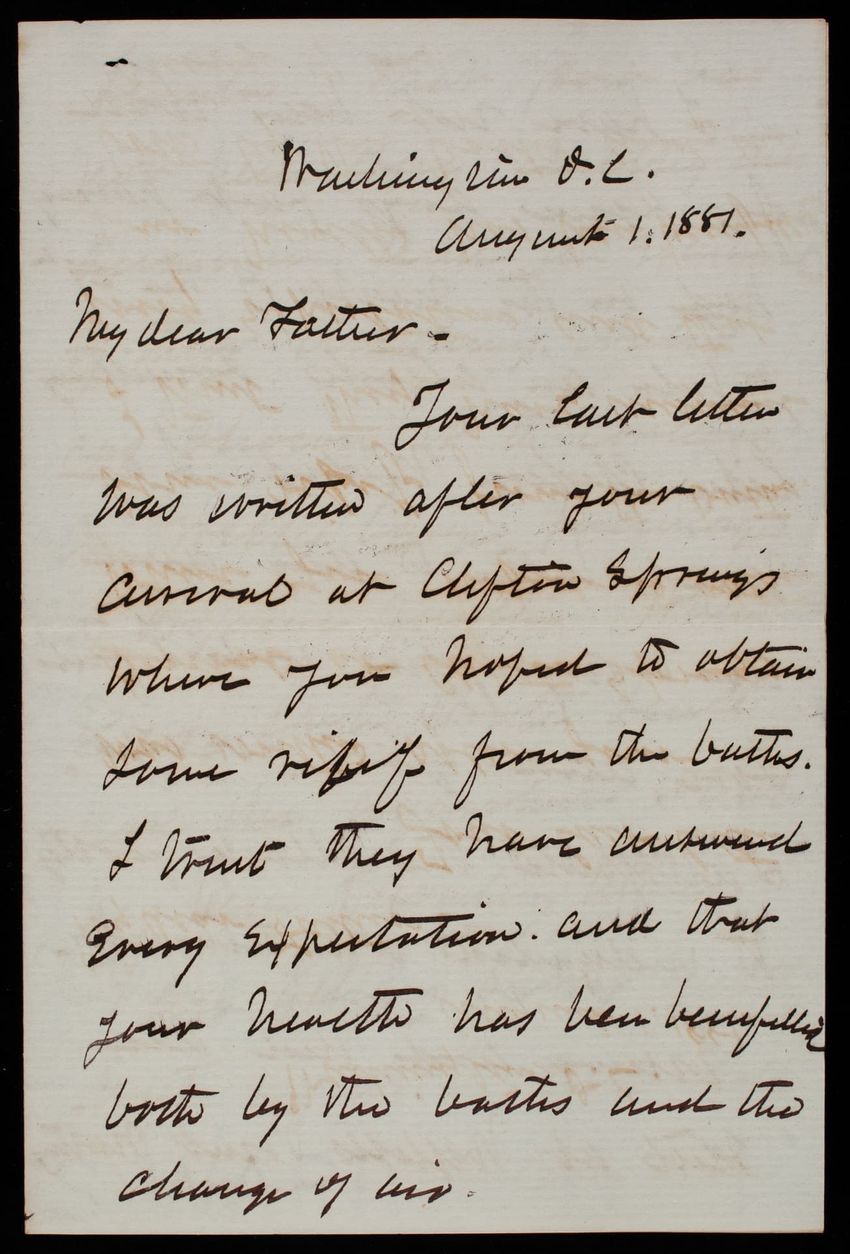 Washington D.C.
August 1. 1881.
My dear Father -
Your last letter
was written after your
arrival at Clifton Springs
where you hoped to obtain
some relief from the baths.
I trust they have answered
every expectation. and that
your health has been benefitted
both by the baths and the
change of air.